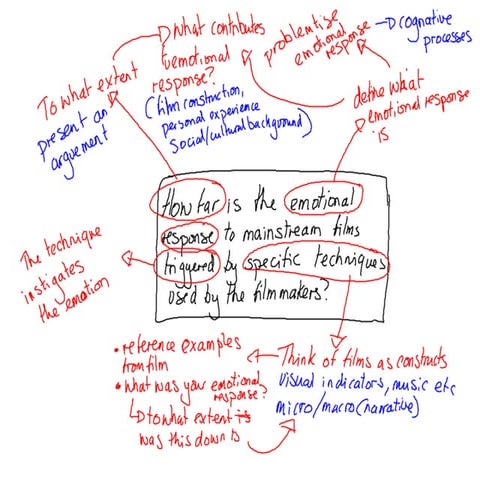 What contributes
emotional
response?
(film construction,
personal experience
Social/cultural background)
problematise
emotional
response
cognative
processes
To what extent
present an
arguement
define what
emotional response
is
How far is the emotional
response to mainstream films
triggered by specific techniques
used by the filmmakers?
The technique
instigates
the emotion
• reference examples
from film
• What was your emotional
response?
to what extent
was this down to
Think of films as constructs
Visual indicators, music etc
micro/macro (narrative)